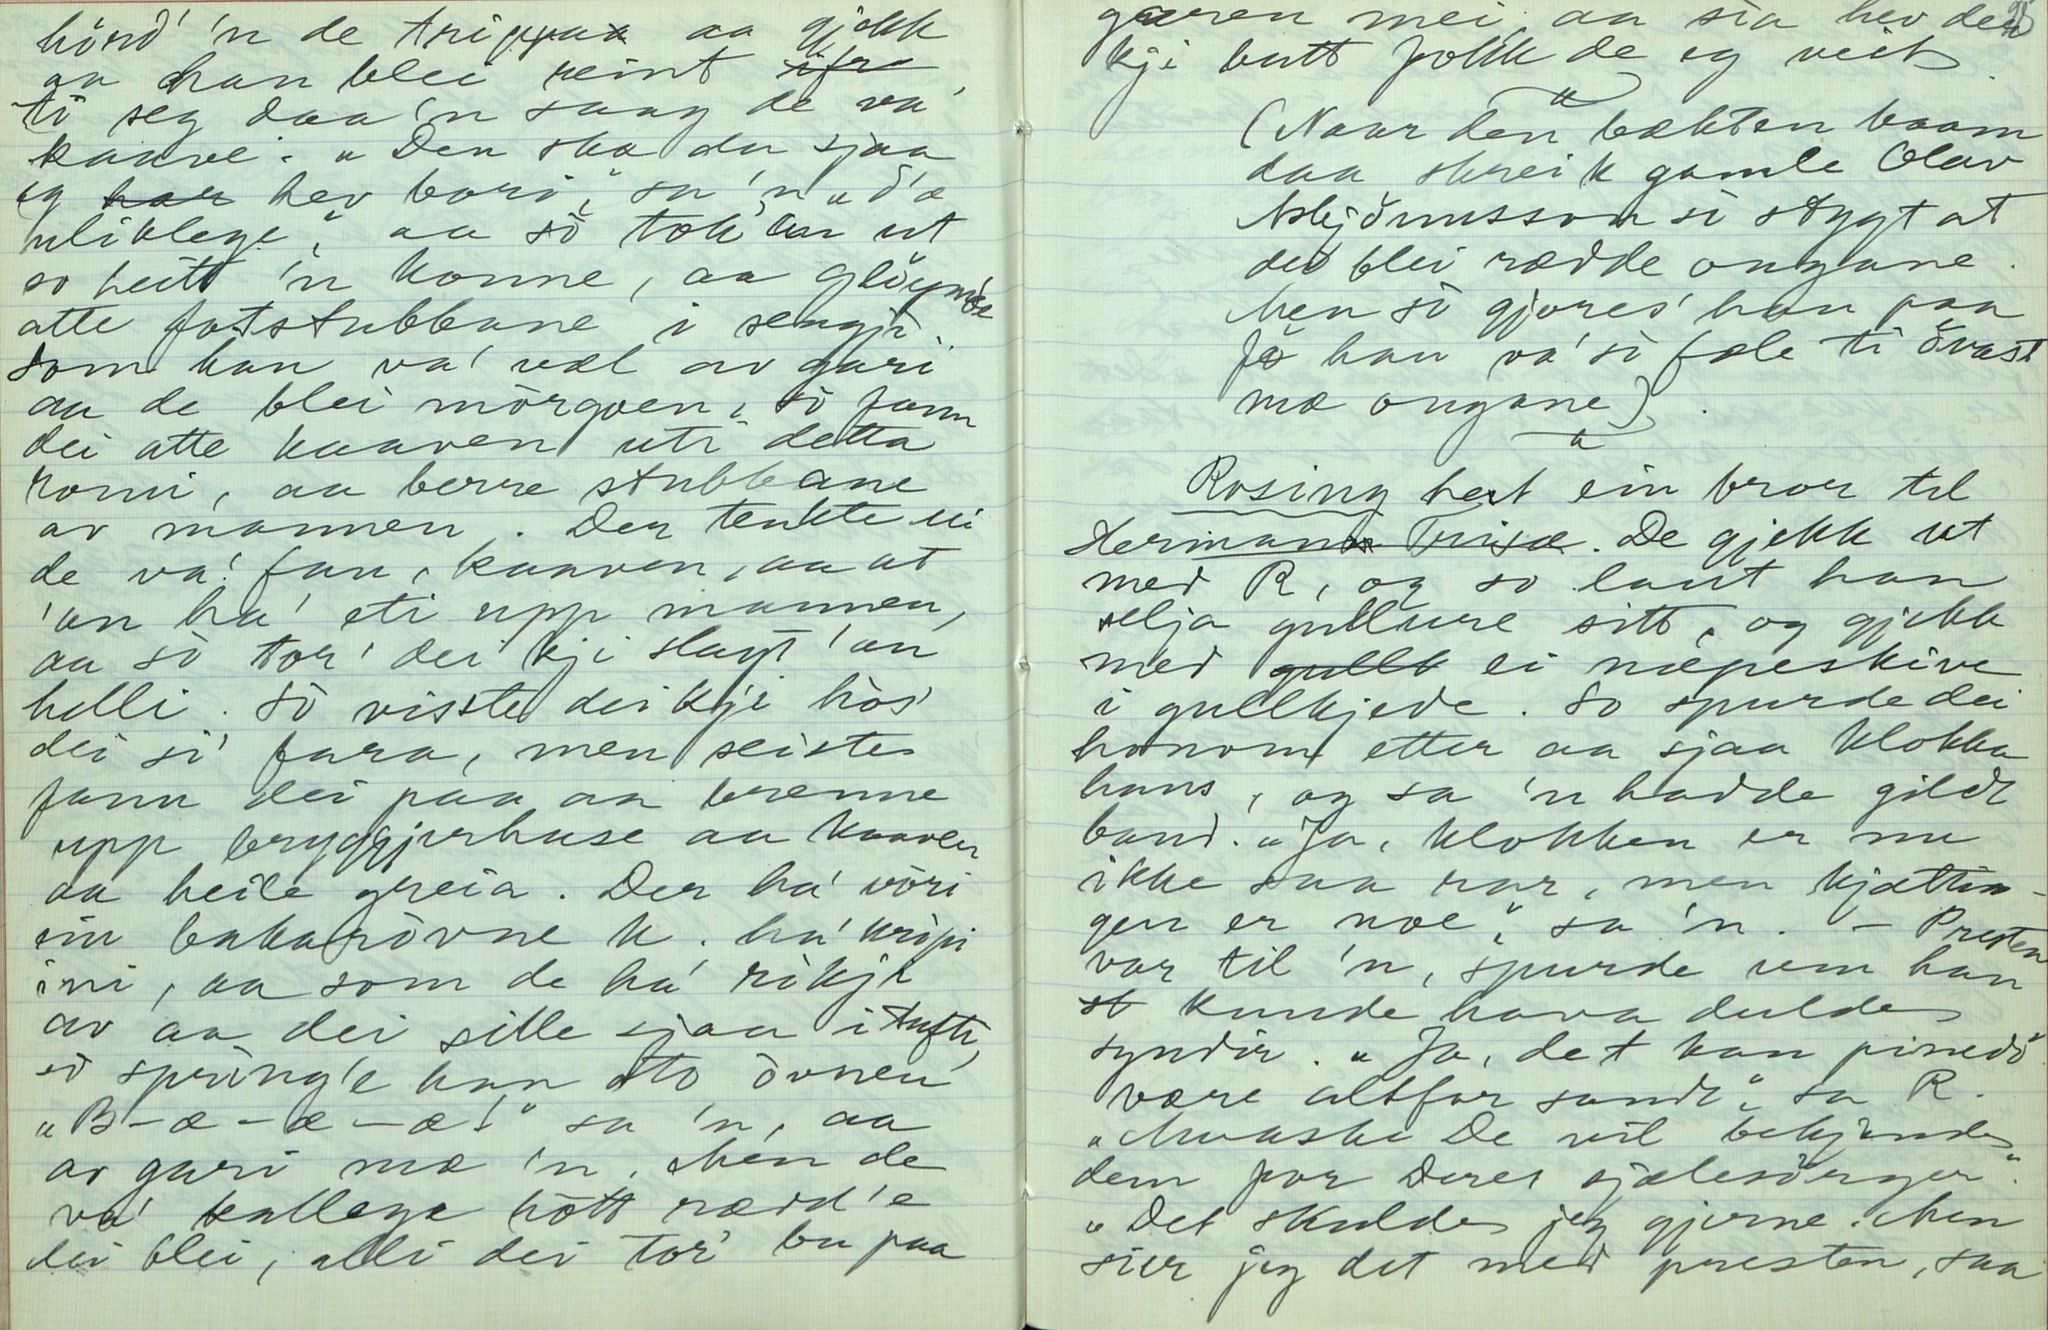 hörd 'n de trippaa aa gjekk
aa han blei reint ifra
ti seg daa 'n saag de va'
kaave. „Den ska du sjaa
eg har hev bori," sa 'n „d'æ
uliklege," aa so tok 'an ut
so heitt 'n konne, aa glöymde
atte fotstubbane i sengji.
Som han va' væl av gari
aa de blei mörgoen, so fann
dei atte kaaven uti detta
romi, aa berre stubbane
av mannen. Der tenkte ei
de va' fan, kaaven, aa at
'an ha' eti upp mannen,
aa so tor' dei kji slagt 'an
helli. So visste dei kji hos'
dei si' fara, men seiste
fann dei paa aa brenne
upp bryggjerhuse aa kaaven
aa heile greia. Der ha' vöri
ein bakarovne k. ha' kropi
ini, aa som de ha' rikji
av aa dei sille sjaa i tufti,
so spring'e han uto ovnen
„B-æ-æ-æ!" sa 'n, aa
av gari mæ 'n. Men de
va' kallege hött rædd'e
dei blei, alli dei tor' bu paa
garen mei, aa sia hev der
kji butt folk de eg veit.
(Naar den bækten kaam
daa skreik gamle Olav
Asbjönnsson so stygt at
dei blei rædde ongane.
Men so gjores' han paa
fö han va' so fæle ti övast
mæ ongane).
Rosing het ein bror til
Hermann Truse. De gjekk ut
med R, og so laut han
selja gullure sitt, og gjekk
med gullk ei næpeskive
i gullkjede. So spurde dei
honom etter aa sjaa klokka
hans, og sa 'n hadde gildt
band. „Ja, klokken er nu
ikke saa rar, men kjættin-
gen er noe," sa 'n. – Presten
var til 'n, spurde um han
st kunde hava dulde
syndir. „Ja, det kan pinedö
være altfor sandt," sa R.
„Muaske De vil bekjende
dem for Deres sjælesörger."
„Det skulde jeg gjerne. Men
sier jeg det med presten, saa